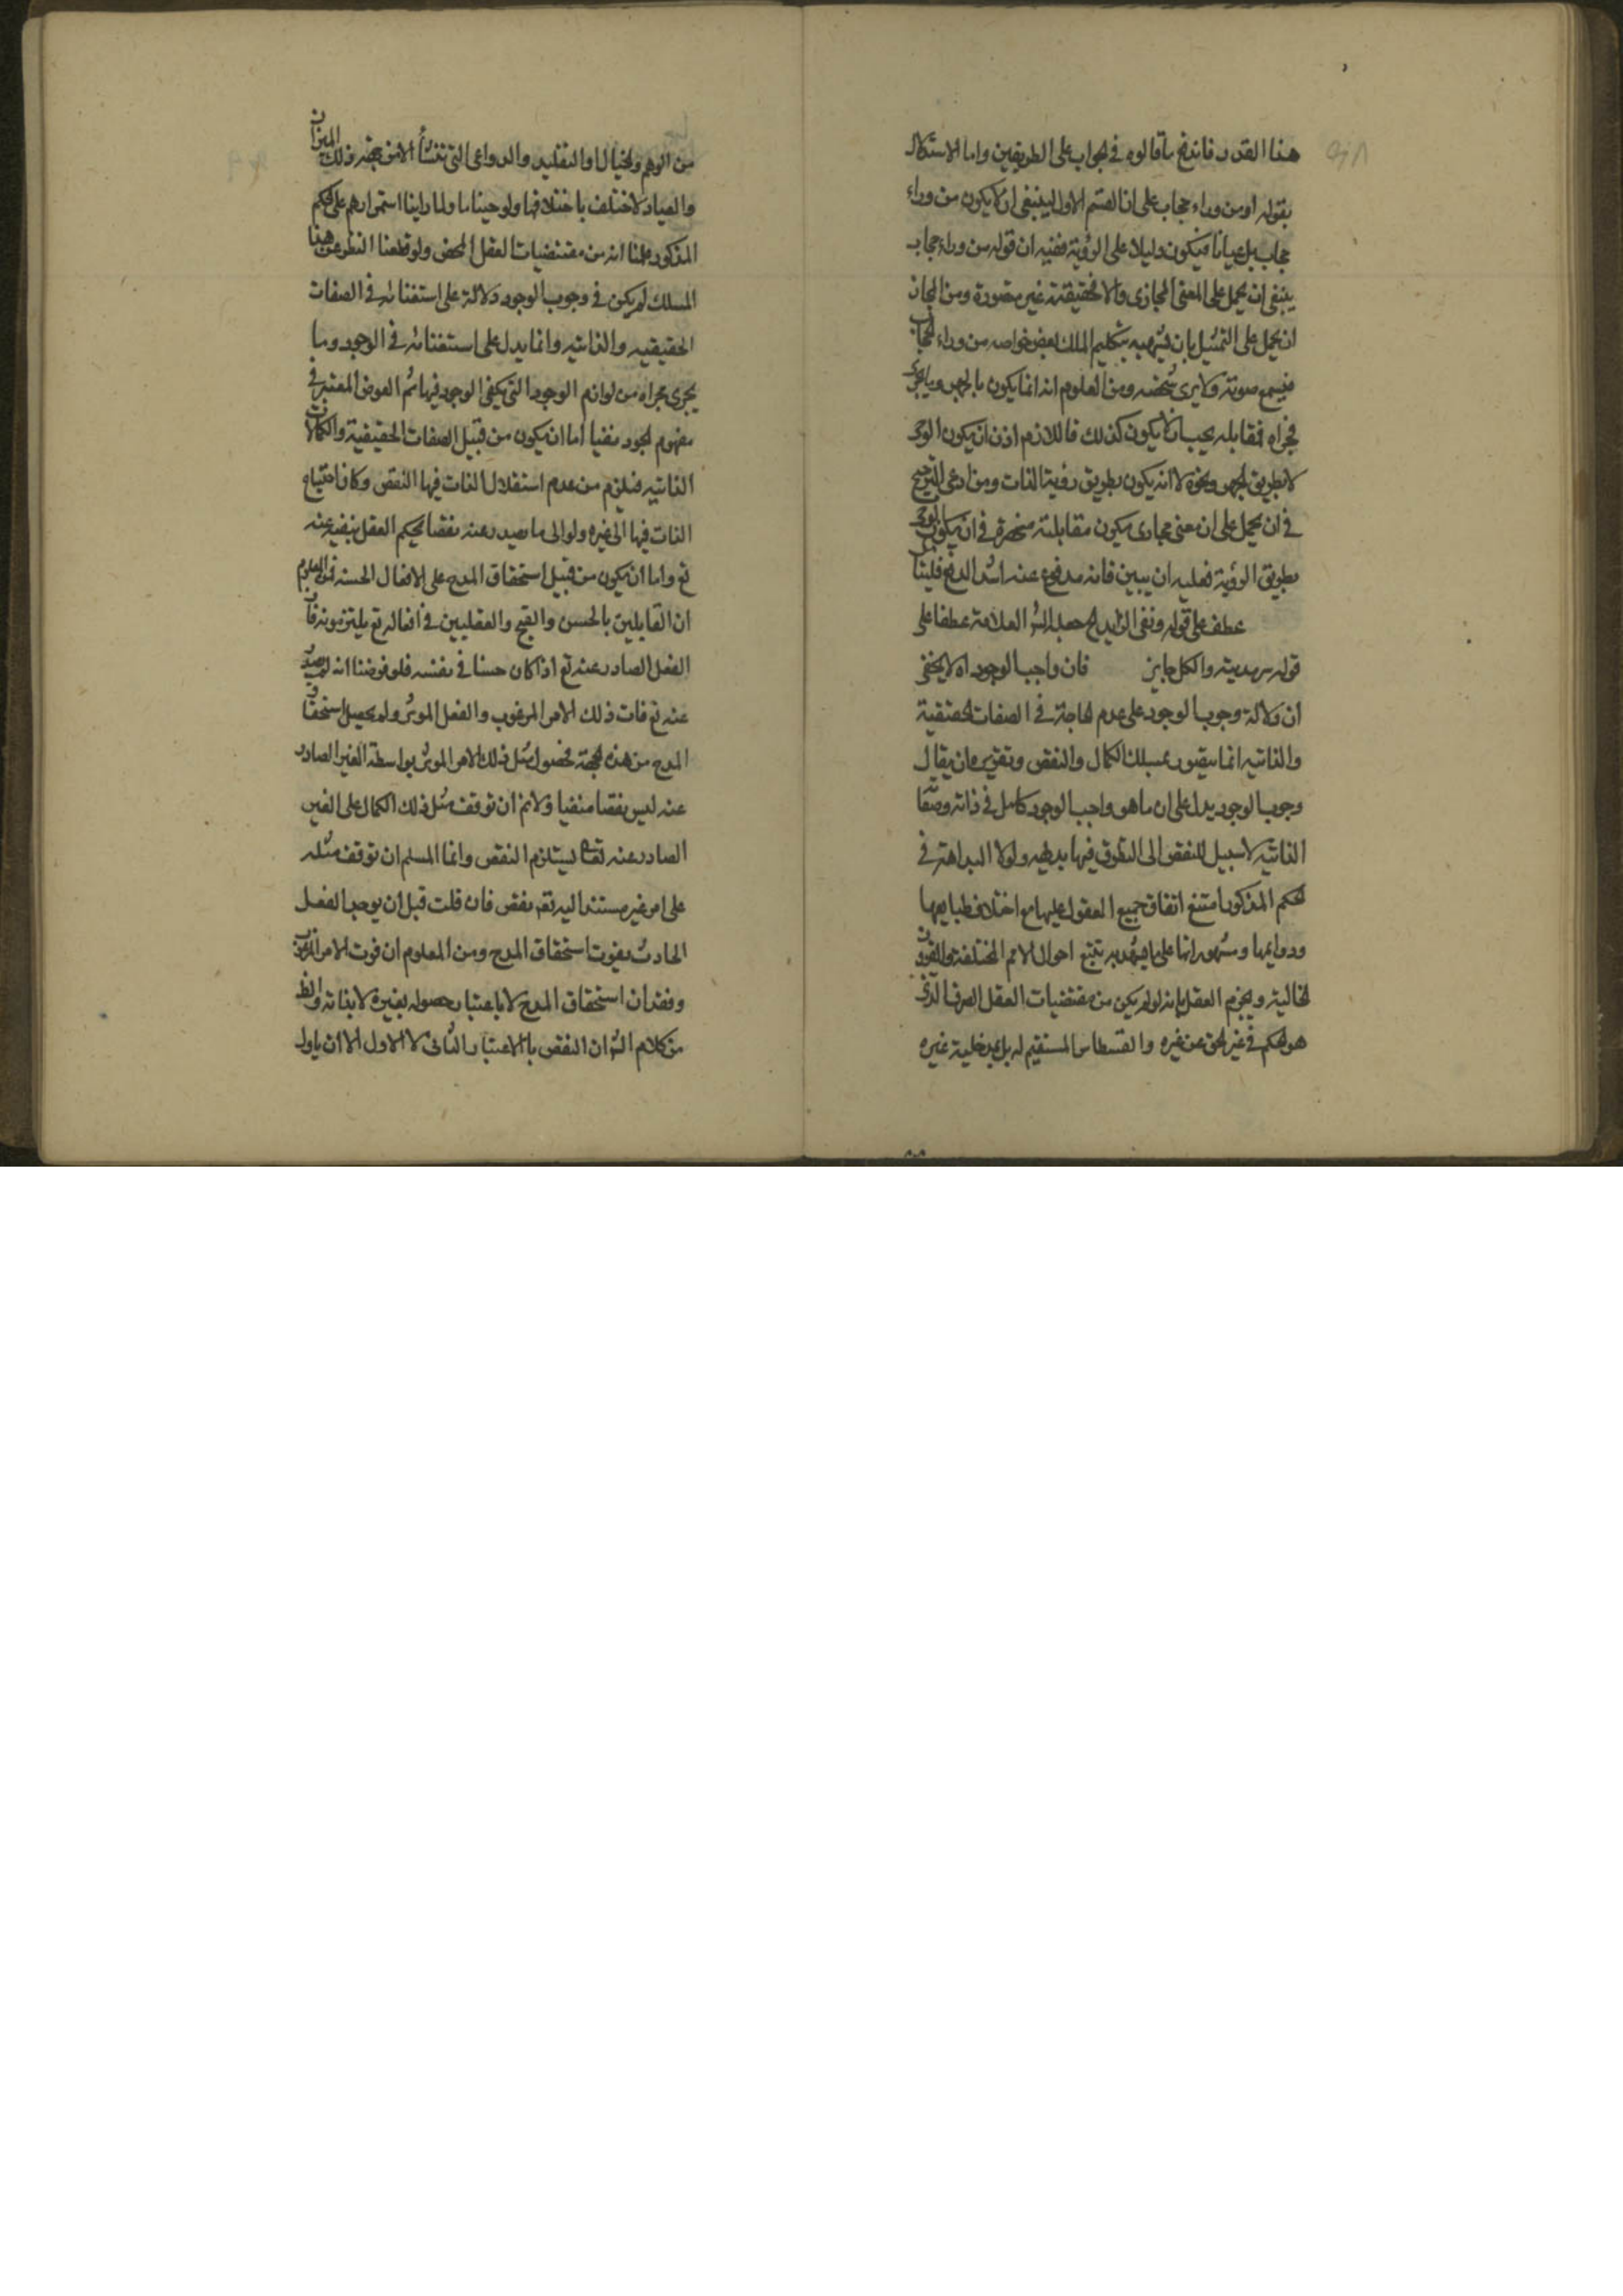 هذا القدر فاندفع ما قالوه في الجواب على الطريقين واما الاستدلال
بقوله او من وراء حجاب على ان القسم الاول ينبغي ان لا يكون من وراء
حجاب بل عيانا فيكون دليلا على الرؤية ففيه ان قوله من وراء حجاب
ينبغي ان يحمل على المعنى المجازي والا فالحقيقة غير متصورة ومن الجائز
ان يحمل على التمثيل بان يشبه بتكليم الملك لبعض خواصه من وراء الحجاب
فيسمع صوته ولا يرى شخصه ومن المعلوم انه انما يكون بالجهر وما يجري
مجراه فمقابله يجب ان لا يكون كذلك فاللازم اذن ان يكون الوحي
لا بطريق الجهر ونحوه لا انه يكون بطريق رؤية الذات ومن ادعى الترجيح
في ان يحمل على ان معنى مجازى يكون مقابلته منحصرة في ان يكون الوحي
بطريق الرؤية فعليه ان يبين فانه مدفوع عنه اشد الدفع فليتأمل
عطف على قوله ونفى الزايد جعله الش العلامة عطفا على
قوله سرمديته والكل جايز فان واجب الوجود اه لا يخفى
ان دلالة وجوب الوجود على عدم الحاجة في الصفات الحقيقية
والذاتيه انما يتصور بمسلك الكمال والنقص وتقريره ان يقال
وجوب الوجود يدل على ان ما هو واجب الوجود كامل في ذاته وصفاته
الذاتية لا سبيل للنقص الى التطرق فيها بديهيه ولولا البداهة في
الحكم المذكور امتنع اتفاق جميع العقول عليها مع اختلاف طبايعها
ودواعيها وشهوراتها على ما يشهد به تتبع احوال الامم المختلفة والقرون
الخالية ويجزم العقل بانه لو لم يكن من مقتضيات العقل الصرف الذي
هو الحكم في غير الحق عن غيره والقسطاس المستقيم له بل بمدخلية غيره
من الوهم والخيال او التقليد والدواعي التي تنشأ الامن بحضر ذلك الميزان
والعيار لاختلف باختلافها ولو حينا ما ولما راينا استمرارهم على الحكم
المذكور علمنا انه من مقتضيات العقل المحض ولو قطعنا النظر عن هذا
المسلك لم يكن في وجوب الوجود دلالة على استغنائه في الصفات
الحقيقيه والذاتيه وانما يدل على استغنائه في الوجود وما
يجرى مجراه من لوازم الوجود التي يكفى الوجود فيها ثم العوض المعتبر في
مفهوم الجود منفيا اما ان يكون من قبيل الصفات الحقيقية والكمالات
الذاتيه فيلزم من عدم استقلال الذات فيها النقص وكان احتياج
الذات فيها الى غيره ولو الى ما يصدر عنه نقصا يحكم العقل بنفيه عنه
تع واما ان يكون من قبيل استحقاق المدح على الافعال الحسنه فمن المعلوم
ان القايلين بالحسن والقبح والعقليين في افعاله تع يلتزمونه فان
الفعل الصادر عنه تع اذا كان حسنا في نفسه فلو فرضنا انه لم يصدر
عنه تع فات ذلك الامر المرغوب والفعل الموثر ولم يحصل استحقاق
المدح من هذه الجهة فحصول مثل ذلك الامر الموثر بواسطة الغير الصادر
عنه ليس نقصا منفيا ولا نم ان توقف مثل ذلك الكمال على الغير
الصادر عنه تعالى يستلزم النقص وانما المسلم ان توقف مثله
على امر غير مستند اليه تع نقص فان قلت قبل ان يوجب الفعل
الحادث يفوت استحقاق المدح ومن المعلوم ان فوت الامر المرغوب
وفقدان استحقاق المدح لا باعتبار حصوله بغيره لا بذاته والظ
من كلام الش ان النقص بالاعتبار الثاني لا الاول الا ان ياول